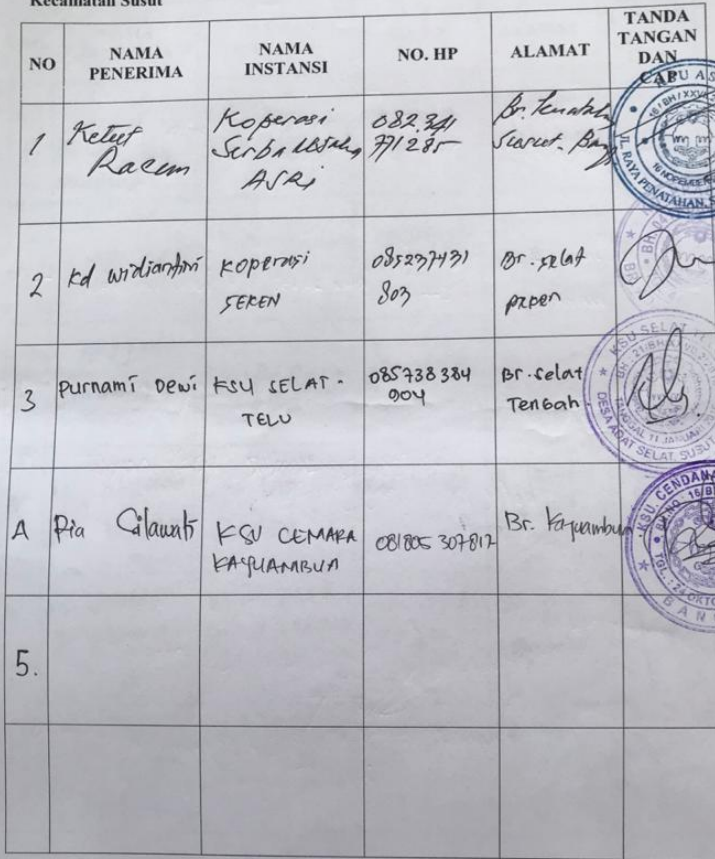 Kecamatan Susut
NO
NAMA
PENERIMA
NAMA
INSTANSI
NO. HP
ALAMAT
TANDA
TANGAN
DAN
CAP
1
Ketut
Racem
Koperasi
Serba Usaha
ASRi
082.341
771285
Br.
Susut. Bang
JL. RAYA PENATAHAN, S
2
Kd widiantini
koperasi
SEKEN
085237431
803
Br. selat
peken
3
Purnami Dewi
KSU SELAT -
TELU
085738384
904
Br. selat
Tengah
KSU SELAT
TANGGAL 11 JANUARI
DESA ADAT SELAT, SUSUT
4
Ria
KSU CEMARA
KAYUAMBUA
081805 307812
Br. Kayuambua
KSU CENDANA
TGL. : 24 OKTO
BAN
5.